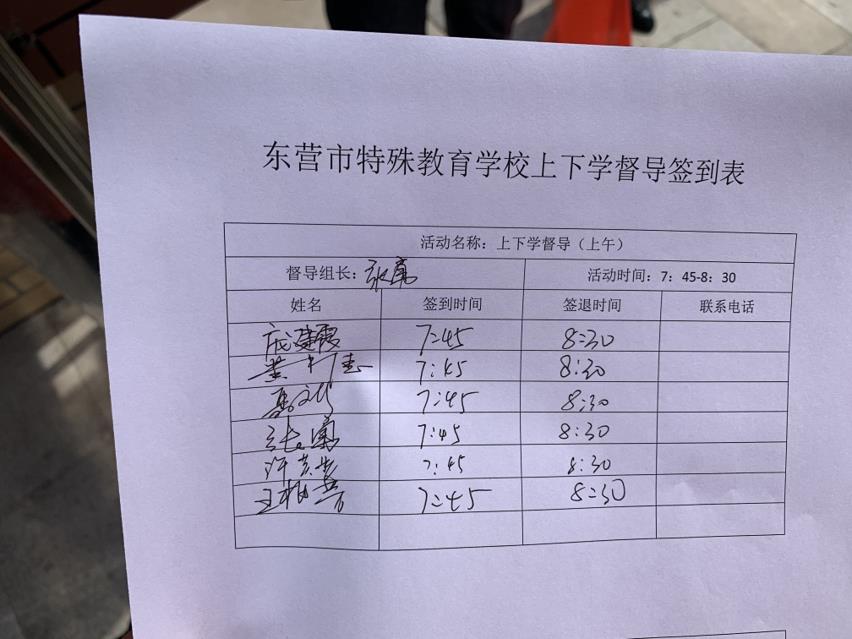 东营市特殊教育学校上下学督导签到表
活动名称：上下学督导（上午）
督导组长： 活动时间：7：45-8：30
姓名 签到时间 签退时间 联系电话
7:45 8:30
7:45 8:30
7:45 8:30
7:45 8:30
7:45 8:30
7:45 8:30